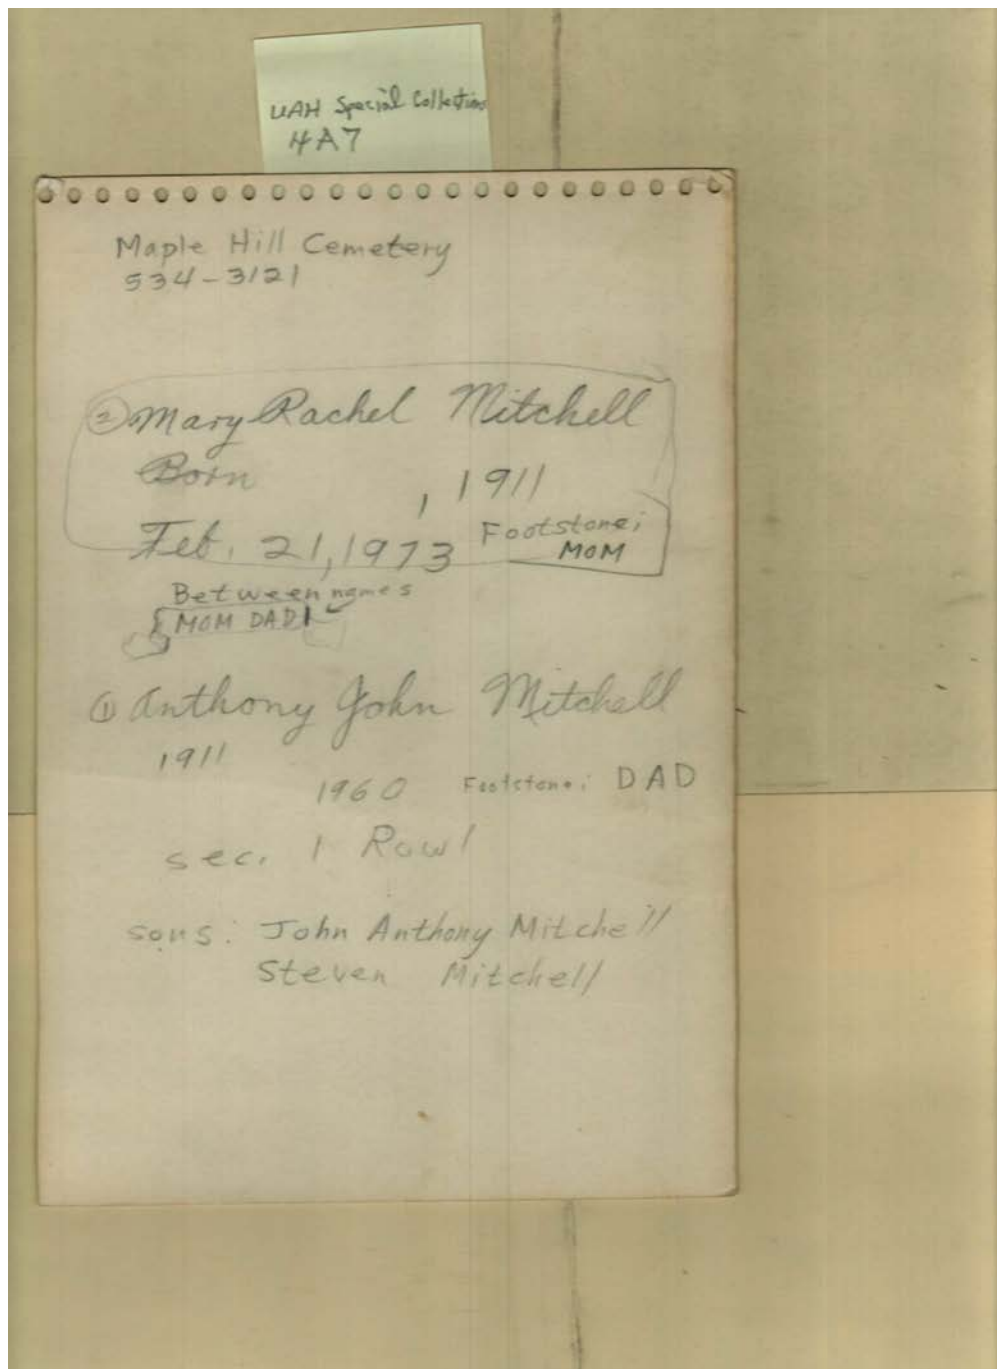 UAH Special Collections
4A7
Maple Hill Cemetery
534-3121
② Mary Rachel Mitchell
Born
, 1911
Feb. 21, 1973 Footstone;
MOM
Between names
MOM DAD
① Anthony John Mitchell
1911
1960 Footstone; DAD
sec. 1 Row 1
sons: John Anthony Mitchell
Steven Mitchell